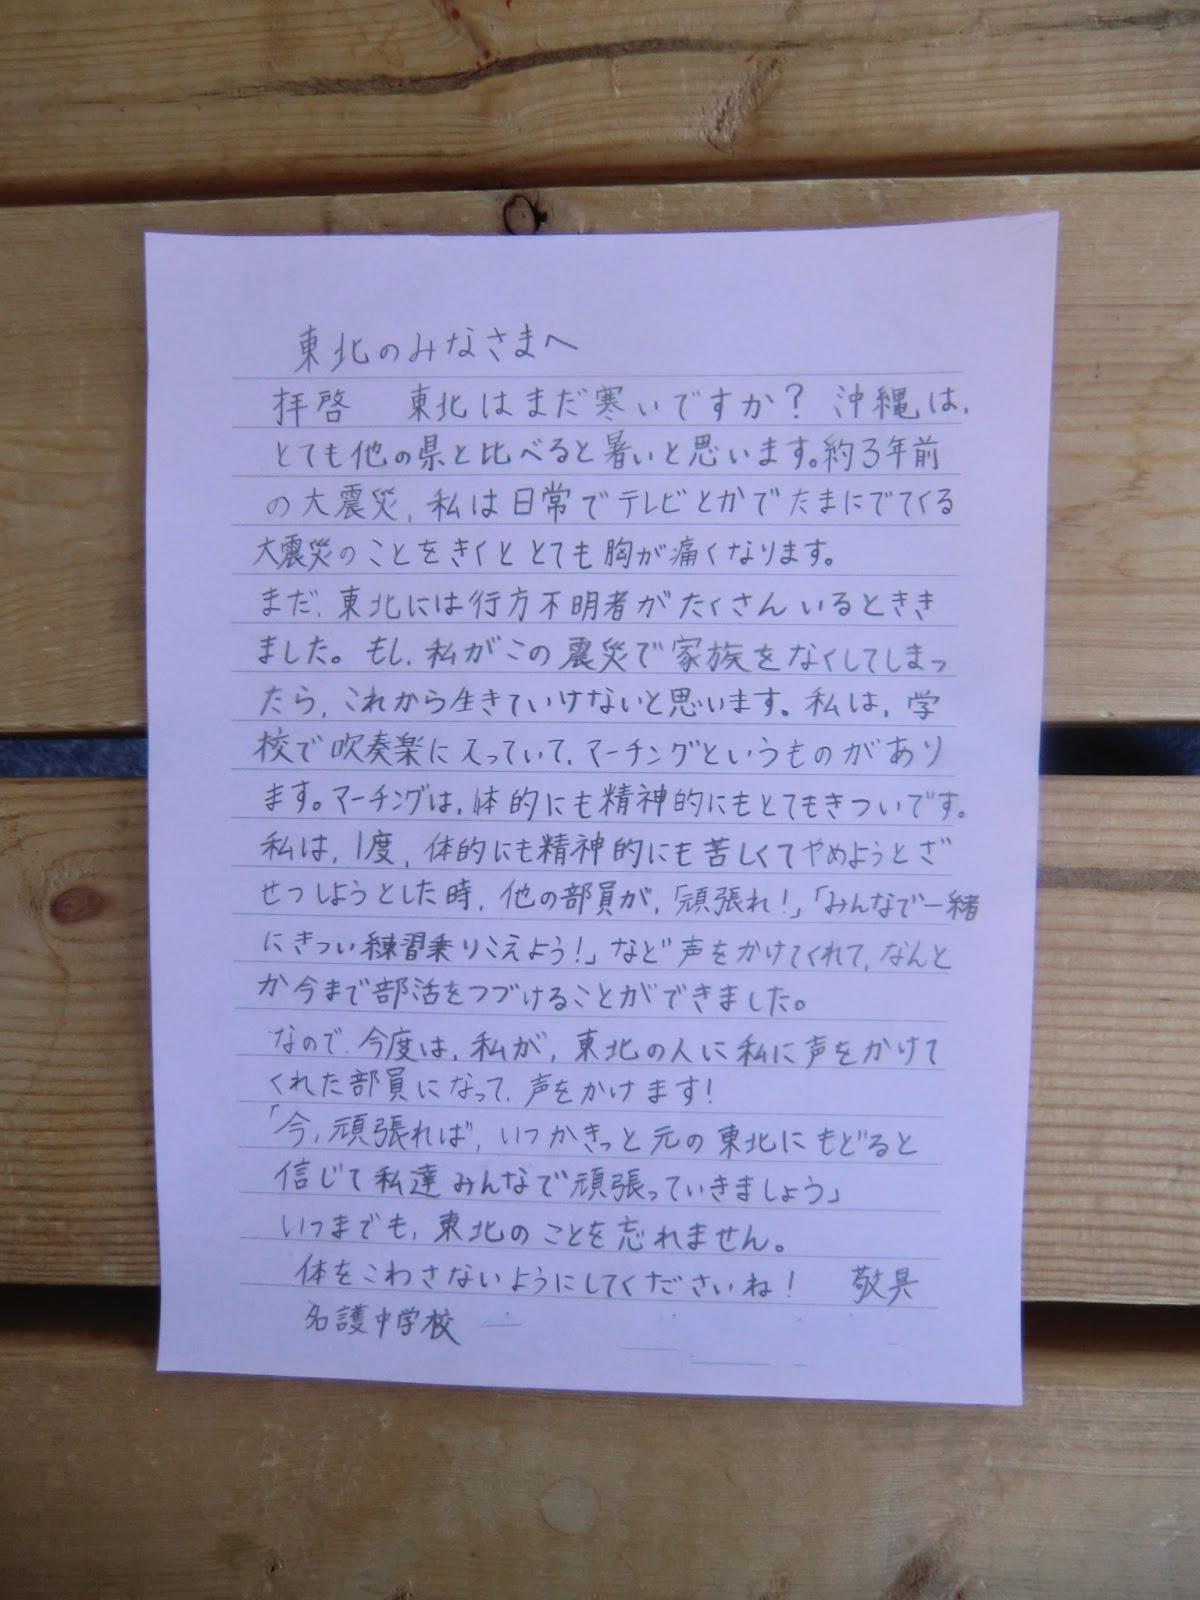 東北のみなさまへ
拝啓　東北はまだ寒いですか？沖縄は、
とても他の県と比べると暑いと思います。約3年前
の大震災、私は日常でテレビとかでたまにでてくる
大震災のことをきくととても胸が痛くなります。
まだ、東北には行方不明者がたくさんいるときき
ました。もし、私がこの震災で家族をなくしてしまっ
たら、これから生きていけないと思います。私は、学
校で吹奏楽に入っていて、マーチングというものがあり
ます。マーチングは、体的にも精神的にもとてもきついです。
私は、1度、体的にも精神的にも苦しくてやめようとざ
せつしようとした時、他の部員が、「頑張れ！」「みんなで一緒
にきつい練習乗りこえよう！」など声をかけてくれて、なんと
か今まで部活をつづけることができました。
なので、今度は、私が、東北の人に私に声をかけて
くれた部員になって、声をかけます！
「今、頑張れば、いつかきっと元の東北にもどると
信じて私達みんなで頑張っていきましょう」
いつまでも、東北のことを忘れません。
体をこわさないようにしてくださいね！　敬具
名護中学校